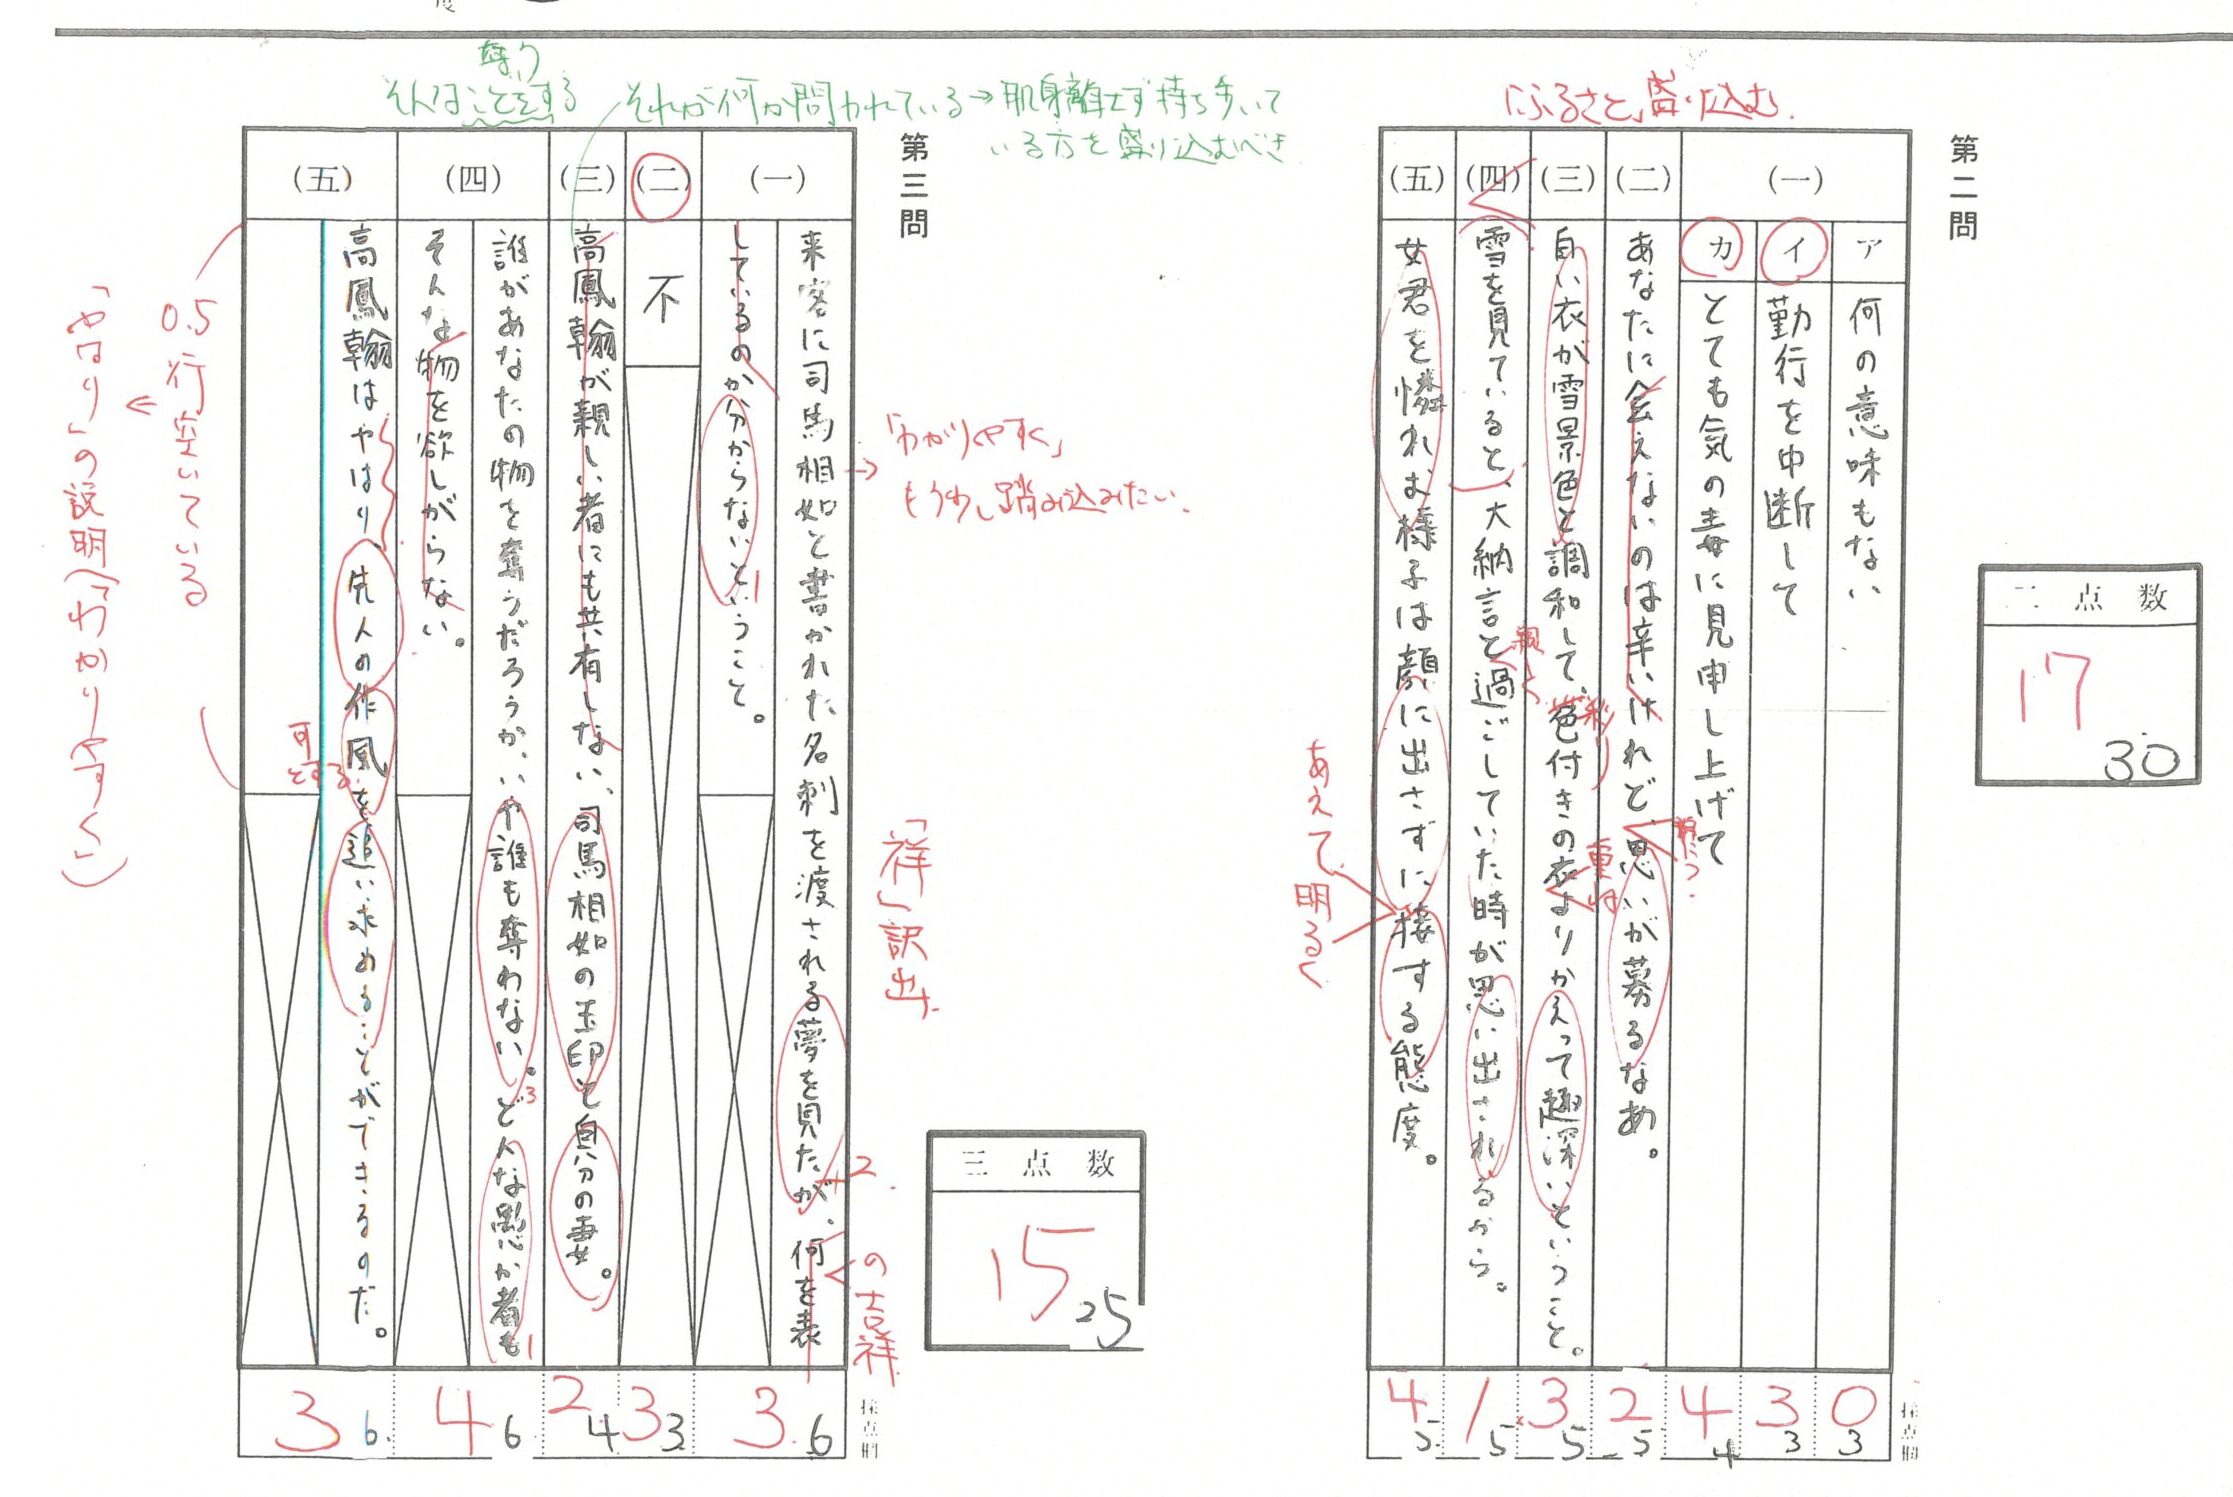 にふるさと」盛り込む
第二問
(一)
ア
何の意味もない
イ
勤行を中断して
カ
とても気の毒に見申し上げて
(二)
あなたに会えないのは辛いけれど、思いが募るなあ。
(三)
白い衣が雪景色と調和して、色付きの衣よりかえって趣深いということ。
彩り
重ね
(四)
雪を見ていると、大納言と過ごしていた時が思い出されるから。
親しく
(五)
女君を憐れむ様子は顔に出さずに接する態度。
あえて明るく
採点欄
0 3
3 3
4 4
2 5
3 5
1 5
4 5
二点数
17
30
そんなことをする
それが何か問われている→肌身離さず持ち歩いて
いる方を盛り込むべき
第三問
(一)
来客に司馬相如と書かれた名刺を渡される夢を見たが、何を表
しているのか分からないということ。
2
1
の吉祥
「祥」訳出
「わかりやすく」
もう少し踏み込みたい
(二)
不
(三)
高鳳翰が親しい者にも共有しない、司馬相如の玉印と自分の妻。
(四)
誰があなたの物を奪うだろうか、いや誰も奪わない。どんな愚か者も
そんな物を欲しがらない。
3
1
(五)
高鳳翰はやはり、先人の作風を追い求めることができるのだ。
可とする
0.5行空いている
「やはり」の説明(「わかりやすく」)
採点欄
3 6
3 3
2 4
4 6
3 6
三点数
15
25